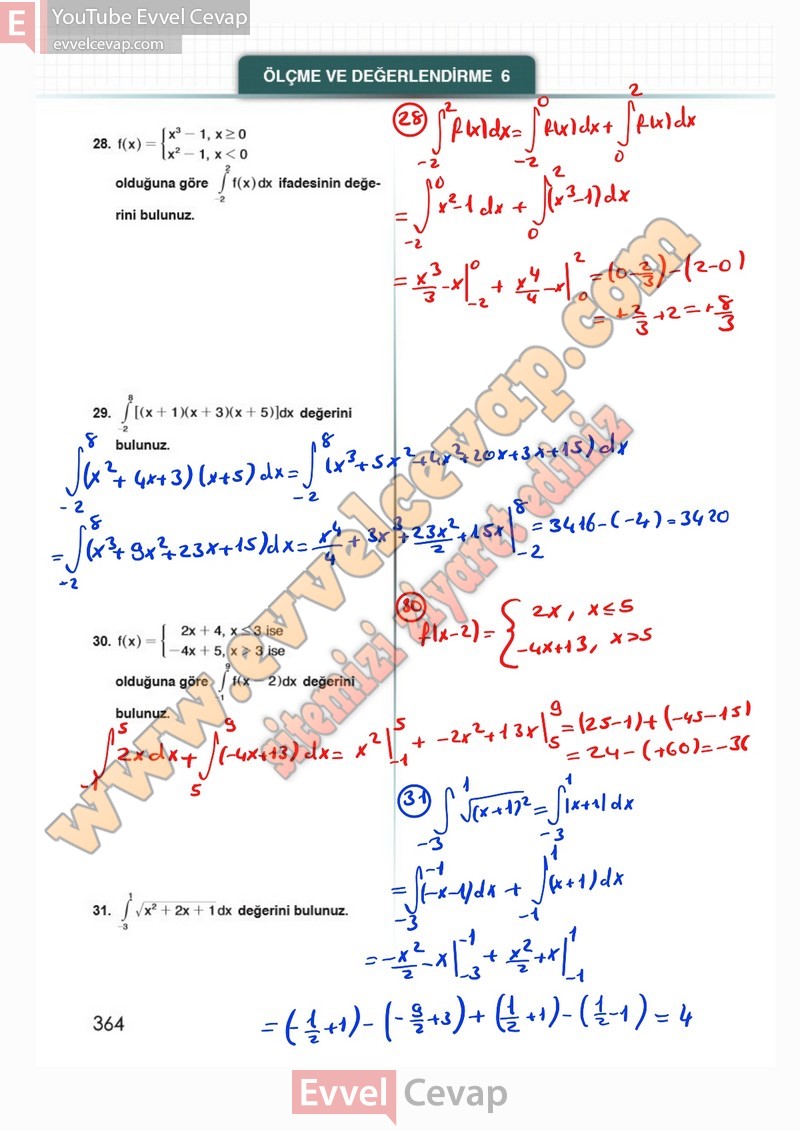 E YouTube Evvel Cevap
evvelcevap.com
ÖLÇME VE DEĞERLENDİRME 6
28. f(x) = { x³ − 1, x ≥ 0
x² − 1, x < 0
olduğuna göre ∫₋₂² f(x) dx ifadesinin değe-
rini bulunuz.
28 ∫₋₂² f(x)dx = ∫₋₂⁰ f(x)dx + ∫₀² f(x)dx
= ∫₋₂⁰ x²-1 dx + ∫₀² (x³-1)dx
= x³/3 - x |₋₂⁰ + x⁴/4 - x |₀² = (0 - 2/3) - (2-0)
= + 2/3 + 2 = + 8/3
29. ∫₋₂⁸ [(x + 1)(x + 3)(x + 5)]dx değerini
bulunuz.
∫₋₂⁸ (x² + 4x+3)(x+5)dx = ∫₋₂⁸ (x³+5x²+4x²+20x+3x+15)dx
= ∫₋₂⁸ (x³+9x²+23x+15)dx = x⁴/4 + 3x³ + 23x²/2 + 15x |₋₂⁸ = 3416-(-4) = 3420
30. f(x) = { 2x + 4, x ≤ 3 ise
−4x + 5, x > 3 ise
olduğuna göre ∫₋₁⁹ f(x − 2)dx değerini
bulunuz.
30 f(x-2) = { 2x, x≤5
-4x+13, x>5
∫₋₁⁵ 2x dx + ∫₅⁹ (-4x+13)dx = x² |₋₁⁵ + -2x²+13x |₅⁹ = (25-1)+(-45-15)
= 24-(+60) = -36
31. ∫₋₃¹ √x² + 2x + 1 dx değerini bulunuz.
31 ∫₋₃¹ √(x+1)² = ∫₋₃¹ |x+1| dx
= ∫₋₃⁻¹ (-x-1)dx + ∫₋₁¹ (x+1)dx
= -x²/2 - x |₋₃⁻¹ + x²/2 + x |₋₁¹
= (-1/2+1) - (-9/2+3) + (1/2+1) - (1/2-1) = 4
364
www.evvelcevap.com
sitemizi ziyaret ediniz
Evvel Cevap